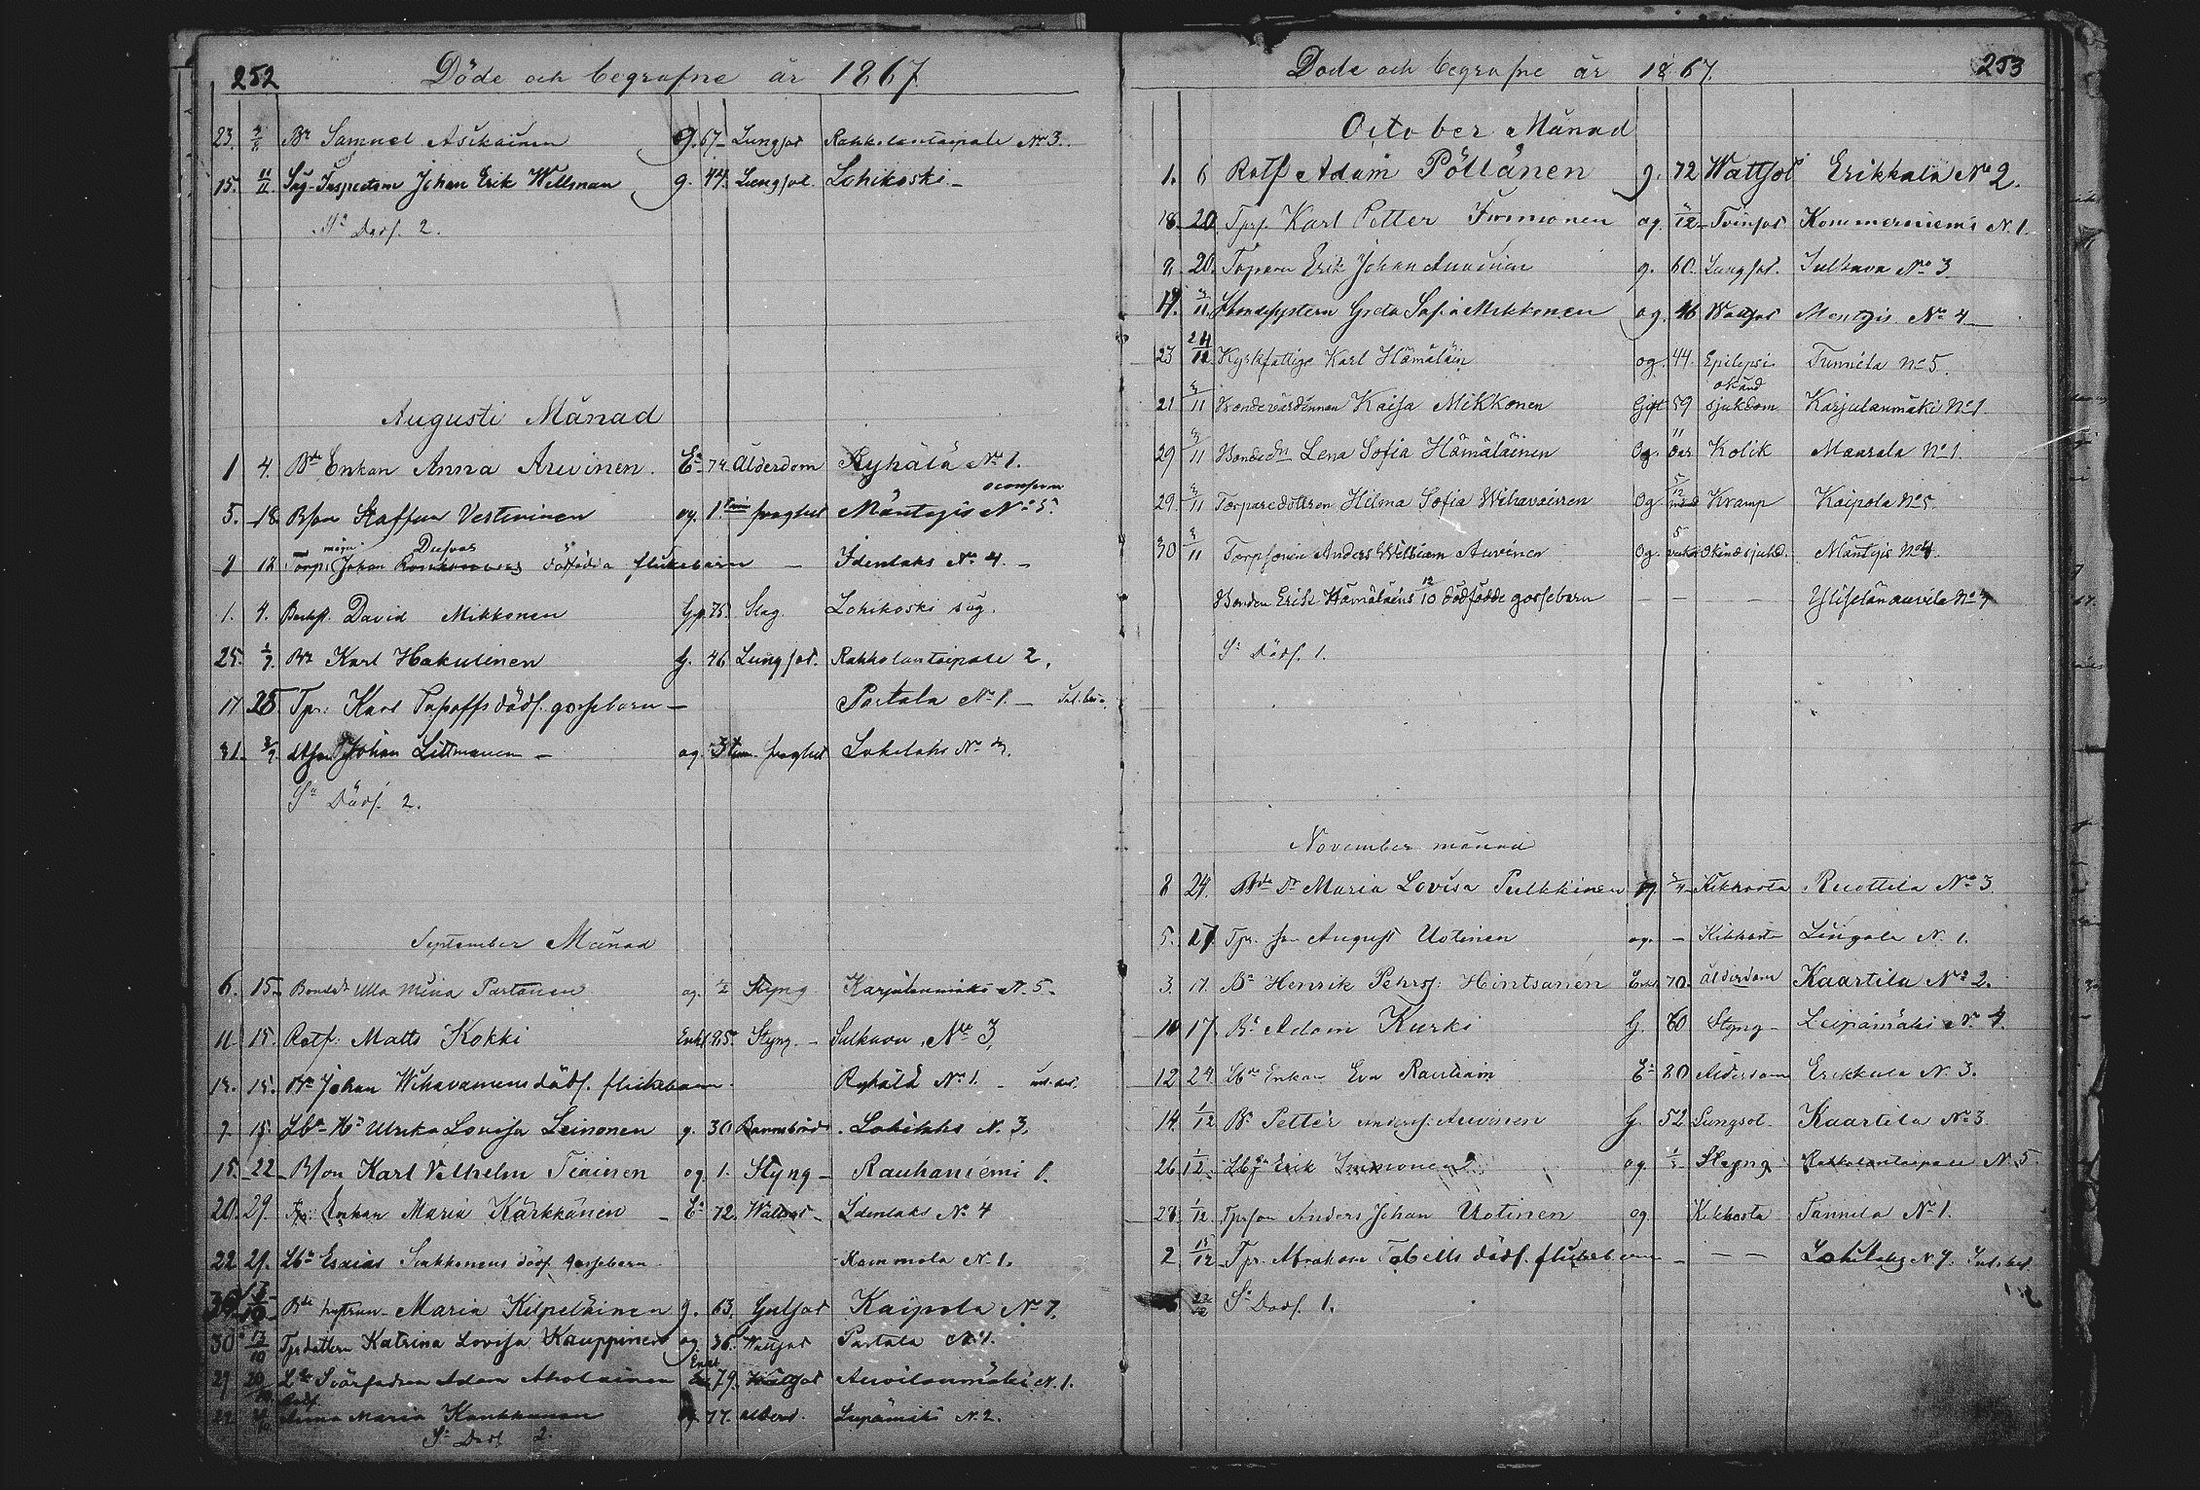 252 Döde och begrafne år 1867.
23. Bn Samuel Asikainen g. 67 Lungsot Rakkolantaipale No 3.
15. 11/11 Såg-Inspectorn Johan Erik Wellman g. 44. Lungsot. Lohikoski
Sa Dödf. 2.
Augusti Månad
1 4. Bde Enkan Anna Auvinen. Ea 74 Ålderdom Ryhälä No 1.
5. 18. Bson Staffan Vestivinen og. 1. tim svaghet Mäntyjis No 5.
Johan dödfödda flickebarn — Idenlaks No 4. —
1. 4. David Mikkonen 75. Slag Lohikoski såg.
25. 1/9. Bn Karl Hakulinen g. 46 Lungsot. Rakkolantaipale 2.
17 25 Tpr. Karl Papoffs dödf. gossebarn — Partala No 1. —
31. Johan Littmanen — og. 3 tim. svaghet Lohilahs No
Sa Dödf. 2.
September Månad
6. 15. Bonded. Ulla Mina Partanen og. 1/2 Styng Karjulanmäki N. 5.
11 15. Rotf: Matts Kokki Enkl. Styng. — Sulkava No 3,
15. Bn Johan Wihavainens dödf. flickebarn. Ryhälä No 1. —
15. Lbs Hu Ulrika Lovisa Leinonen g. 30 Barnsbörd. Lohilahs N. 3.
15. 22 Bson Karl Vilhelm Tiainen og. 1. Styng — Rauhaniemi 1.
20. 29. Tpr: Enkan Maria Kärkkänen — Ea 72. Wattsot — Idenlaks No 4
22 29. Lbs Esaias dödf. gossebarn Kammola N. 1.
Bde hustrun Maria Kilpeläinen g. 63. Gulsot Kaipola No 7.
30 13/10 Tprdottern Katrina Lovisa Kauppinen og. 36. Wattsot Partala N. 1.
29 Svärfadren Adam Aholainen Enkl 79. Wattsot Auvilanmäki N. 1.
Anna Maria 77. ålderd. Leipämäki N. 2.
Sa Dödf. 2.
Döde och begrafne år 1867. 253
October Månad
1. 6 Rotf Adam Pöllänen g. 72 Wattsot Erikkala No 2.
18. 20 Tprs. Karl Petter Immonen og. Tvinsot Kommerniemi N. 1.
9. 20. Torparn Erik Johan Auvinen g. 60. Lungsot. Sulkava No 3
19. 3/11. Bondesystern Greta Sofia Mikkonen og. 46 Wattsot Mäntyjis No 4
23 24/12 Kyrkfattige Karl Hämäläin og. 44. Epilepsi Tunnila No 5.
21 3/11 Bondevärdinnan Kaisa Mikkonen Gift 59 okänd sjukdom Karjulanmäki No 1
29 3/11 Lena Sofia Hämäläinen Og. 11 dar Kolik Maarala No 1.
29. 3/11 Torparedottren Hilma Sofia Wihavainen Og. 5/12 mån Kramp Kaipola No 5.
30 3/11 Torpsonen Anders William Auvinen Og. 5 veckor Okänd sjukd. Mäntyjis No 4.
Bonden Erik Hämäläins 12/10 dödfödde gossebarn — — Ylisenlanauvila No
Sa Dödf. 1.
November månad
8 24. Bde Dr Maria Lovisa Pulkkinen og Kikhosta Ruottila No 3
5. 17. Tpr. son August Uotinen og. — Kikhosta Lingola N. 1.
3. 17. Bn Henrik Pehrss: Hintsanen Enkl 70. ålderdom Kaartila No 2.
10 17. Bn Adam Kurki G. 60 Styng — Leipämäki No 4.
12 24 Lbs Enkan Eva Rautiain Ea 80 Ålderdom Erikkala N. 3.
14. 1/12 Bn Petter Anderss. Auvinen G. 52 Lungsot. Kaartila No 3.
26 1/12. Erik Immonen og. Styng Rakkolantaipale N. 5.
28. 1/12. Tprson Anders Johan Uotinen og. Kikhosta Tannila No 1.
2 15/12 Tpr. Abraham Tabells dödf. flickebarn — — —
22/12 Sa Dödf. 1.